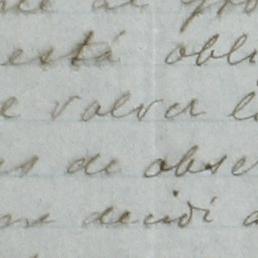 está obli
e volver l
s de obse
me decidí a